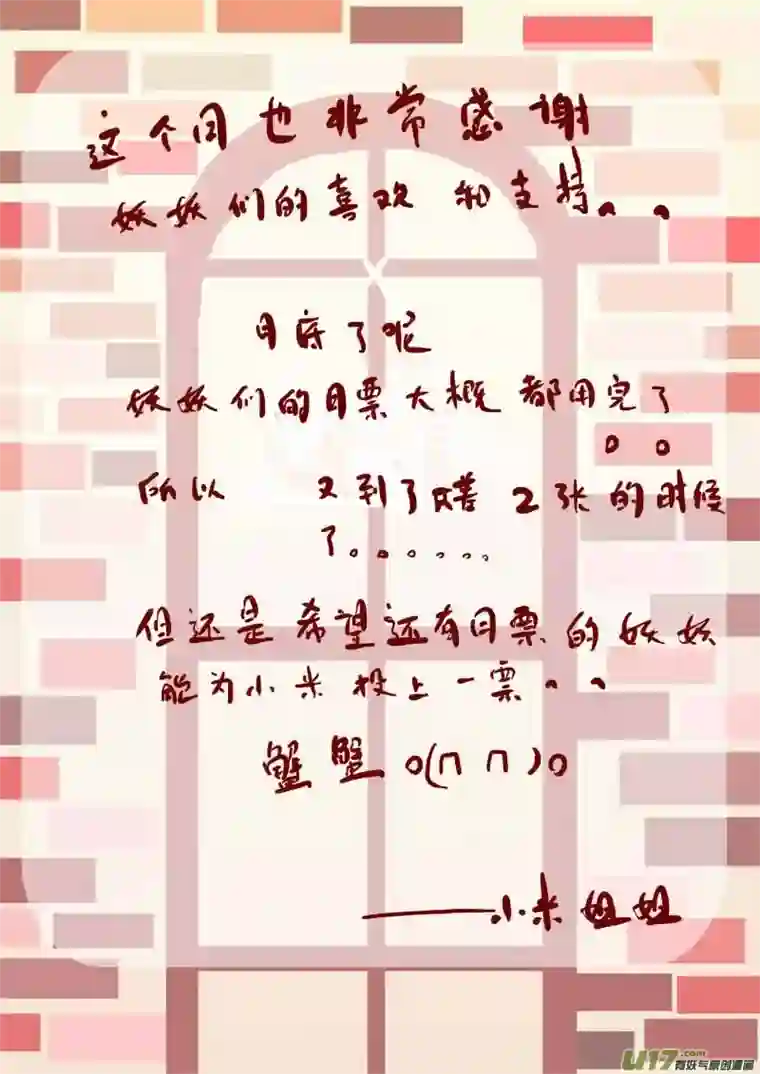 这个月也非常感谢
妖妖们的喜欢 和支持。。
月底了呢
妖妖们的月票大概 都用完了
。。
所以 又到了 2张的时候
了。。。。。。
但还是希望还有月票的妖妖
能为小米投上一票。。
蟹蟹 o(∩ ∩)o
——小米姐姐
U17.com
有妖气原创漫画